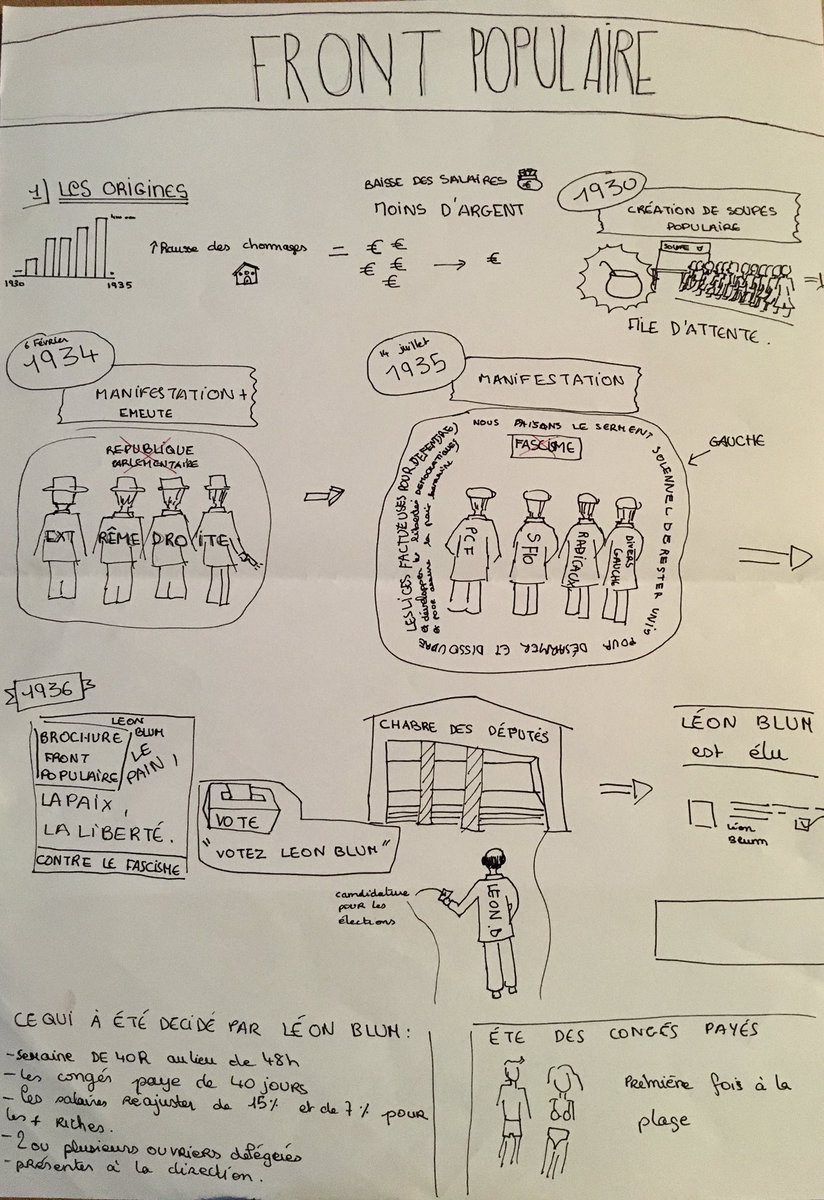 FRONT POPULAIRE
1) LES ORIGINES
1930
1935
↑ Hausse des chomages
=
BAISSE DES SALAIRES
MOINS D'ARGENT
€ €
€ €
€
→ €
1930
CRÉATION DE SOUPES
POPULAIRE
SOUPE
FILE D'ATTENTE.
6 Février
1934
MANIFESTATION +
EMEUTE
REPUBLIQUE
PARLEMENTAIRE
EXT RÊME DRO ITE
14 juillet
1935
MANIFESTATION
NOUS FAISONS LE SERMENT
SOLENNEL DE RESTER UNIS
POUR DÉSARMER ET DISSOUDRE
LES LIGES FACTUEUSES POUR DÉFENDRE,
et développer les libertés DEMOCRATIQUES,
et pour assurer la paix humaine
FASCISME
GAUCHE
PCF
SFIO
RADICAUX
DIVERS
GAUCHE
1936
LEON
BLUM
BROCHURE
FRONT
POPULAIRE
LE
PAIN,
LA PAIX,
LA LIBERTÉ.
CONTRE LE FASCISME
VOTE
"VOTEZ LEON BLUM"
CHABRE DES DÉPUTÉS
candidature
POUR LES
élections
LEON.B
LÉON BLUM
est élu
Léon
Blum
CE QUI À ÉTÉ DECIDÉ PAR LÉON BLUM:
-Semaine DE 40R au lieu de 48h
- Les congés paye de 40 jours
- Les salaires réajuster de 15% et de 7% pour
les + Riches.
- 2 ou plusieurs ouvriers délégérés
- présenter à la direction.
ÉTE DES CONGÉS PAYÉS
Première fois à la
plage